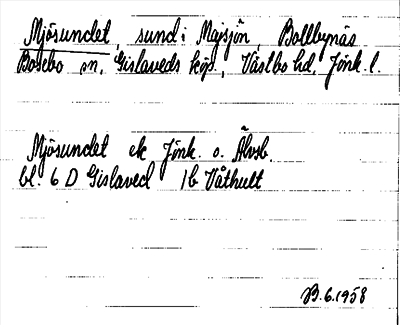 Mjösundet, sund i Majsjön, Bollbynäs
Bosebo sn, Gislaveds köp., Västbo hd, Jönk. l.
Mjösundet ek Jönk. o. Älvsb.
bl. 6 D Gislaved 1b Våthult
B.6.1958